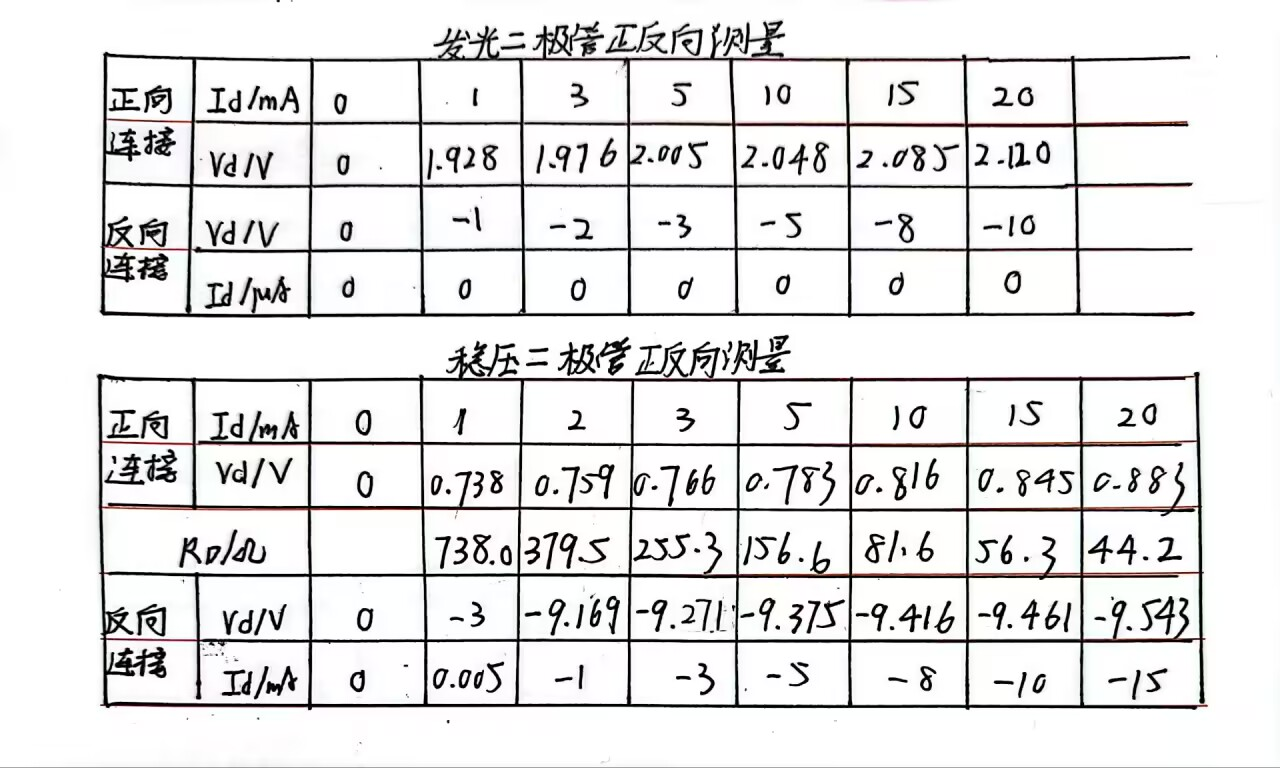 发光二极管正反向测量
正向连接 Id/mA 0 1 3 5 10 15 20
Vd/V 0 1.928 1.976 2.005 2.048 2.085 2.120
反向连接 Vd/V 0 -1 -2 -3 -5 -8 -10
Id/μA 0 0 0 0 0 0 0
稳压二极管正反向测量
正向连接 Id/mA 0 1 2 3 5 10 15 20
Vd/V 0 0.738 0.759 0.766 0.783 0.816 0.845 0.883
RD/Ω 738.0 379.5 255.3 156.6 81.6 56.3 44.2
反向连接 Vd/V 0 -3 -9.169 -9.271 -9.375 -9.416 -9.461 -9.543
Id/mA 0 0.005 -1 -3 -5 -8 -10 -15